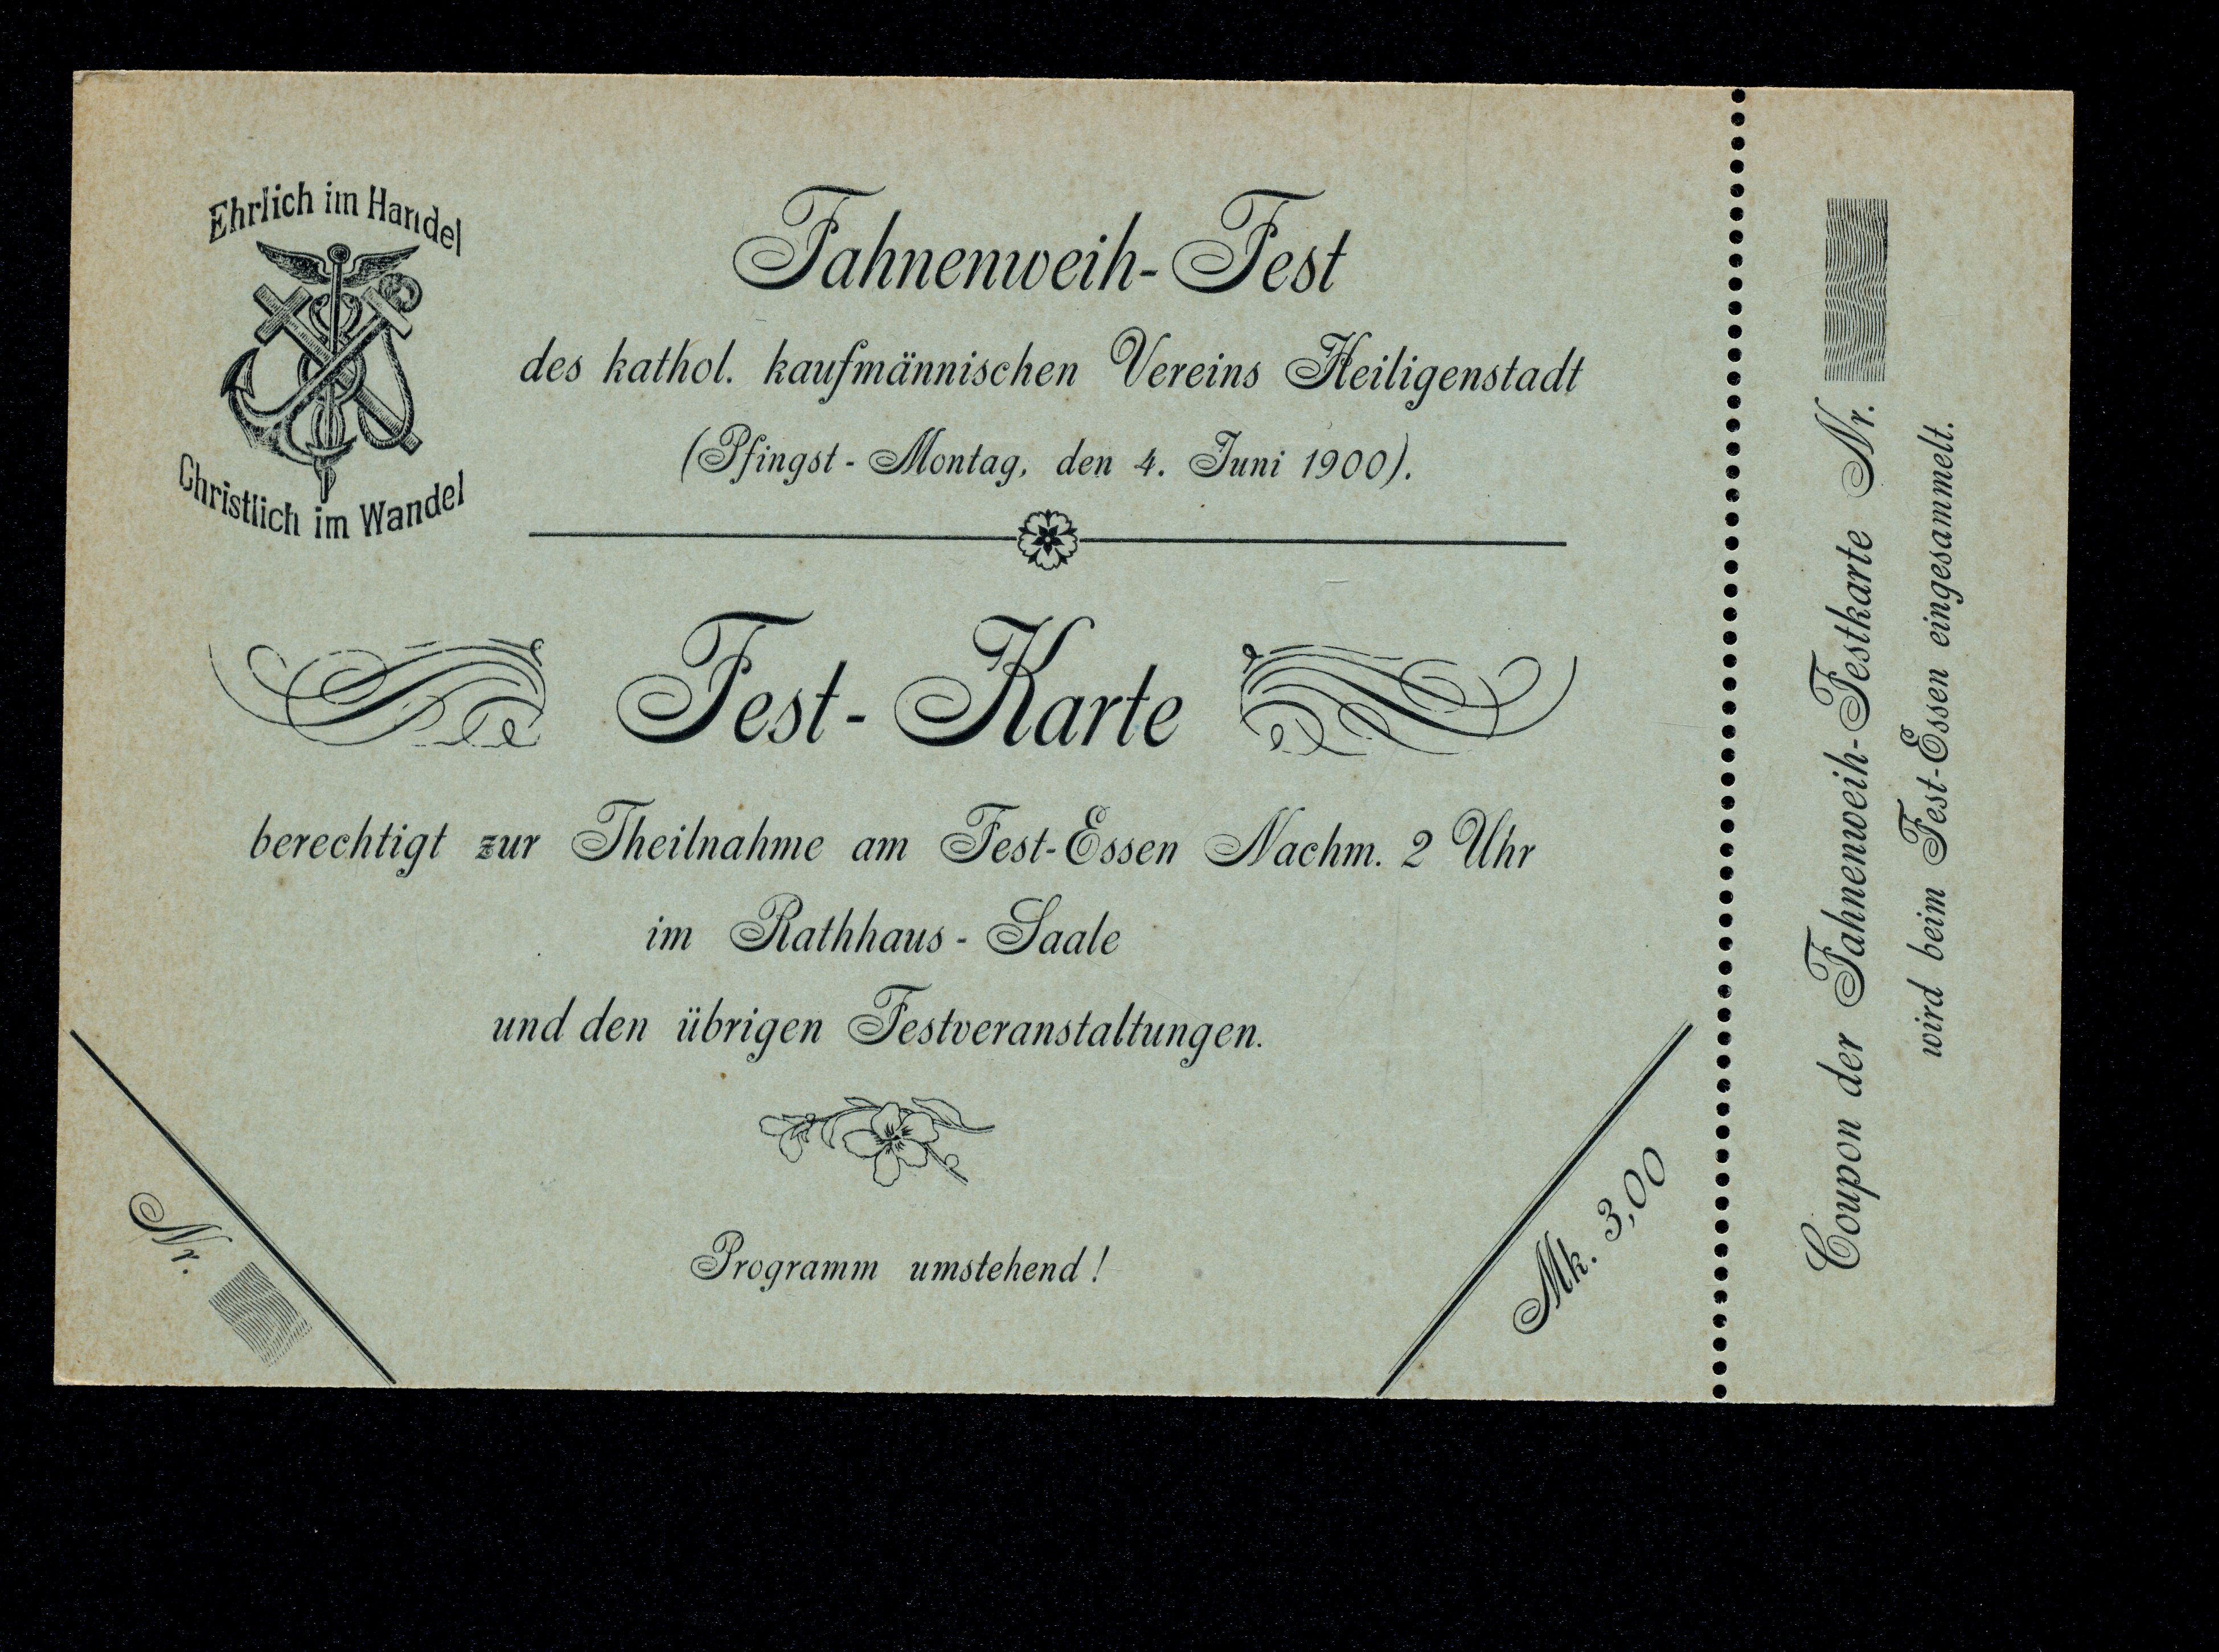 Ehrlich im Handel
Christlich im Wandel
Fahnenweih-Fest
des kathol. kaufmännischen Vereins Heiligenstadt
(Pfingst-Montag, den 4. Juni 1900).
Fest-Karte
berechtigt zur Theilnahme am Fest-Essen Nachm. 2 Uhr
im Rathhaus-Saale
und den übrigen Festveranstaltungen.
Programm umstehend!
Nr.
Mk. 3,00
Coupon der Fahnenweih-Festkarte Nr.
wird beim Fest-Essen eingesammelt.